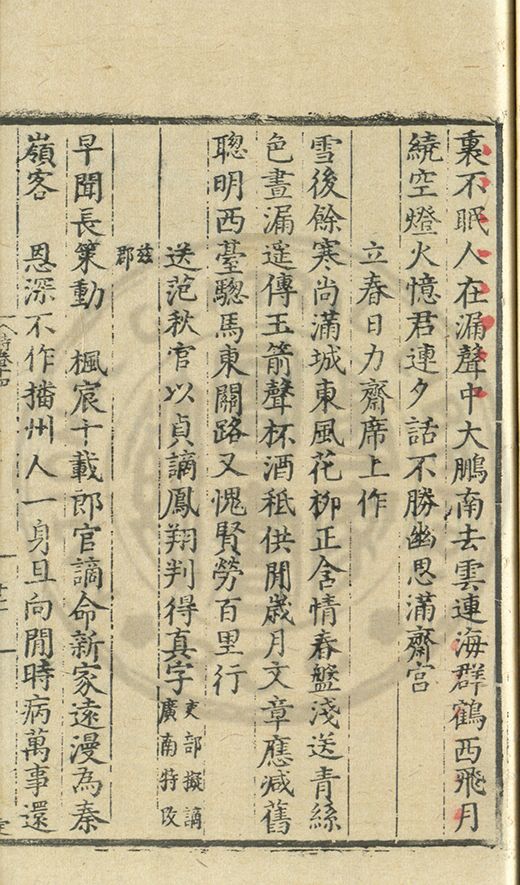 裏不眠人在漏聲中大鵬南去雲連海群鶴西飛月
繞空燈火憶君連夕話不勝幽思滿齋宮
立春日力齋席上作
雪後餘寒尚滿城東風花柳正含情春盤淺送青絲
色畫漏遥傳玉箭聲杯酒秪供閒歲月文章應减舊
聰明西臺驄馬東關路又愧賢勞百里行
送范秋官以貞謫鳳翔判得真字吏部擬謫廣南特改
兹郡
早聞長策動 楓宸十載郎官謫命新家遠漫為秦
嶺客 恩深不作播州人一身且向閒時病萬事還